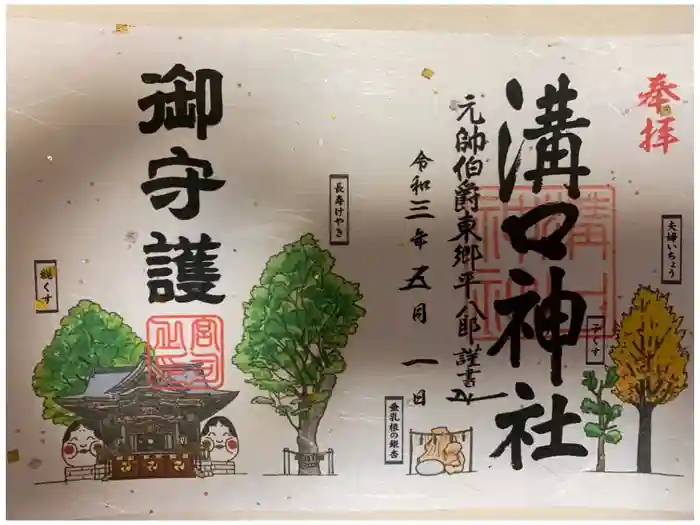 奉拝
溝口神社
元帥伯爵東郷平八郎謹書
令和三年五月一日
御守護
夫婦いちょう
子くす
垂乳根の銀杏
長寿けやき
親くす
溝口神社
宮司之印